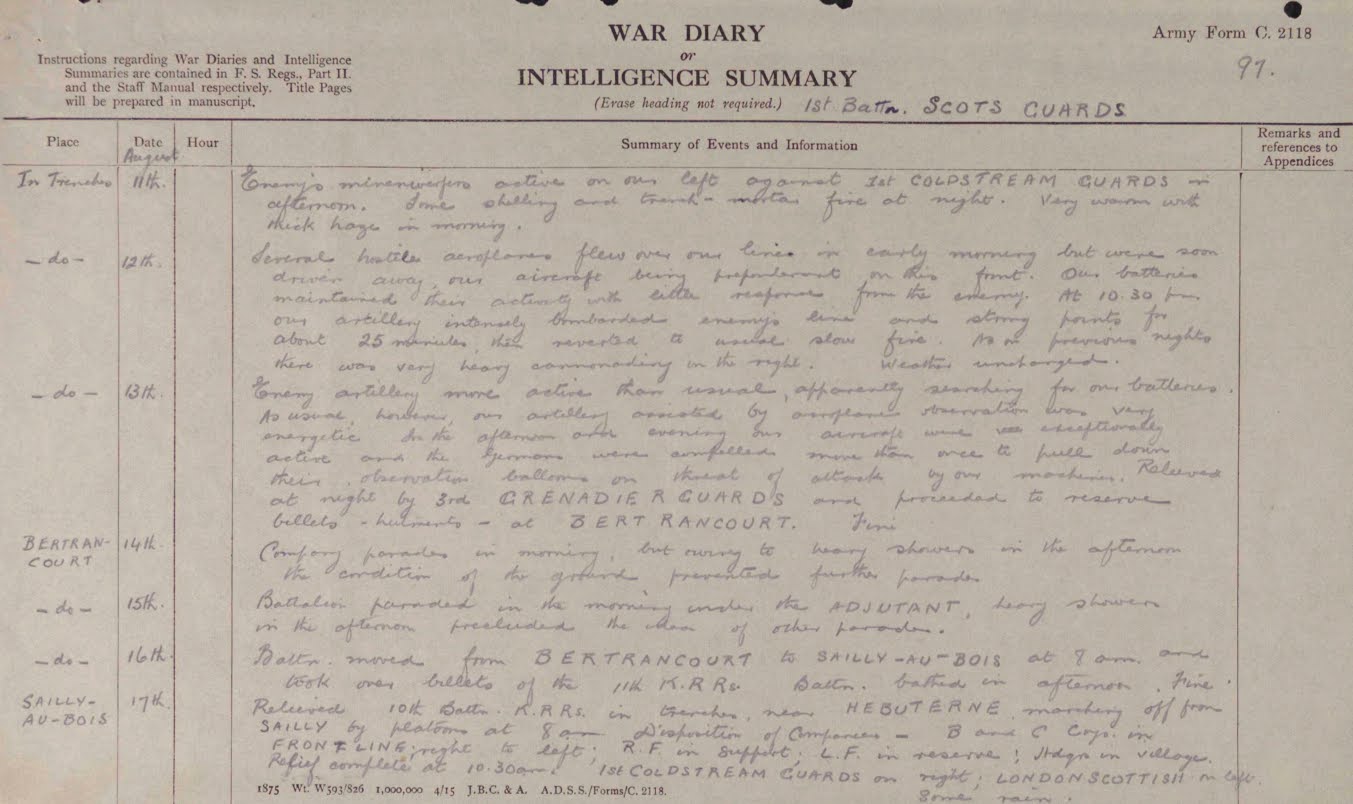 WAR DIARY
or
INTELLIGENCE SUMMARY
(Erase heading not required.) 1st Battn. SCOTS GUARDS
Army Form C. 2118
97.
Instructions regarding War Diaries and Intelligence
Summaries are contained in F. S. Regs., Part II.
and the Staff Manual respectively. Title Pages
will be prepared in manuscript.
Place Date Hour Summary of Events and Information Remarks and references to Appendices
August
In Trenches 11th. Enemy's minenwerfers active on our left against 1st COLDSTREAM GUARDS in
afternoon. Some shelling and trench-mortar fire at night. Very warm with
thick haze in morning.
-do- 12th. Several hostile aeroplanes flew over our lines in early morning but were soon
driven away, our aircraft being preponderant on this front. Our batteries
maintained their activity with little response from the enemy. At 10.30 pm
our artillery intensely bombarded enemy's line and strong points for
about 25 minutes, then reverted to usual slow fire. As on previous nights
there was very heavy cannonading on the right. Weather unchanged.
-do- 13th. Enemy artillery more active than usual, apparently searching for our batteries.
As usual, however, our artillery assisted by aeroplane observation was very
energetic. In the afternoon and evening our aircraft were exceptionally
active and the Germans were compelled more than once to pull down
their observation balloons on threat of attack by our machines. Relieved
at night by 3rd GRENADIER GUARDS and proceeded to reserve
billets - hutments - at BERTRANCOURT. Fine
BERTRAN-
COURT 14th. Company parades in morning, but owing to heavy showers in the afternoon
the condition of the ground prevented further parades
-do- 15th. Battalion paraded in the morning under the ADJUTANT, heavy showers
in the afternoon precluded the idea of other parades.
-do- 16th. Battn. moved from BERTRANCOURT to SAILLY-AU-BOIS at 8 am. and
took over billets of the 11th K.R.Rs. Battn. bathed in afternoon. Fine.
SAILLY-
AU-BOIS 17th. Relieved 10th Battn. K.R.Rs. in trenches, near HEBUTERNE, marching off from
SAILLY by platoons at 8 am Disposition of Companies - B and C Coys. in
FRONT LINE, right to left; R.F. in support; L.F. in reserve; Hdqrs in village.
Relief complete at 10.30am. 1st COLDSTREAM GUARDS on right; LONDON SCOTTISH on left.
Some rain.
1875 Wt. W593/826 1,000,000 4/15 J.B.C. & A. A.D.S.S./Forms/C. 2118.